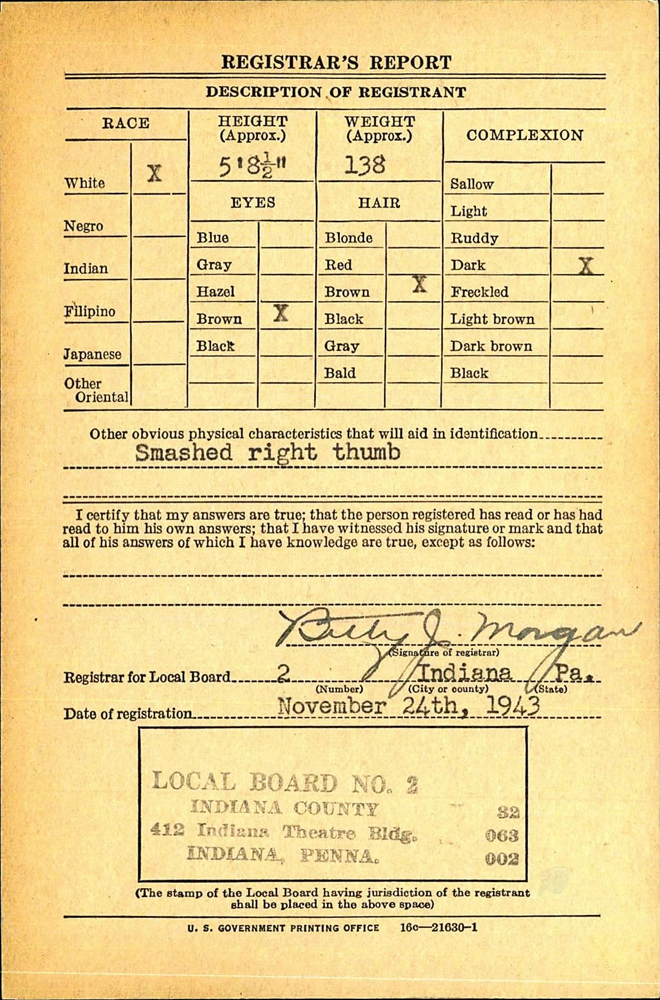 REGISTRAR'S REPORT
DESCRIPTION OF REGISTRANT
RACE
HEIGHT
(Approx.)
WEIGHT
(Approx.)
COMPLEXION
5'8½"
138
White X
Negro
Indian
Filipino
Japanese
Other
Oriental
EYES
Blue
Gray
Hazel
Brown X
Black
HAIR
Blonde
Red
Brown X
Black
Gray
Bald
Sallow
Light
Ruddy
Dark X
Freckled
Light brown
Dark brown
Black
Other obvious physical characteristics that will aid in identification
Smashed right thumb
I certify that my answers are true; that the person registered has read or has had
read to him his own answers; that I have witnessed his signature or mark and that
all of his answers of which I have knowledge are true, except as follows:
Betty J. Morgan
(Signature of registrar)
Registrar for Local Board 2 Indiana Pa.
(Number) (City or county) (State)
Date of registration November 24th, 1943
LOCAL BOARD NO. 2
INDIANA COUNTY 32
412 Indiana Theatre Bldg. 063
INDIANA, PENNA. 002
(The stamp of the Local Board having jurisdiction of the registrant
shall be placed in the above space)
U. S. GOVERNMENT PRINTING OFFICE 16c—21630-1